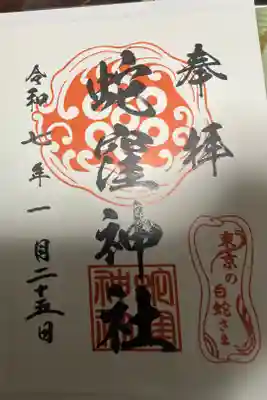 奉拝
蛇窪神社
令和七年一月二十五日
東京の
白蛇さま